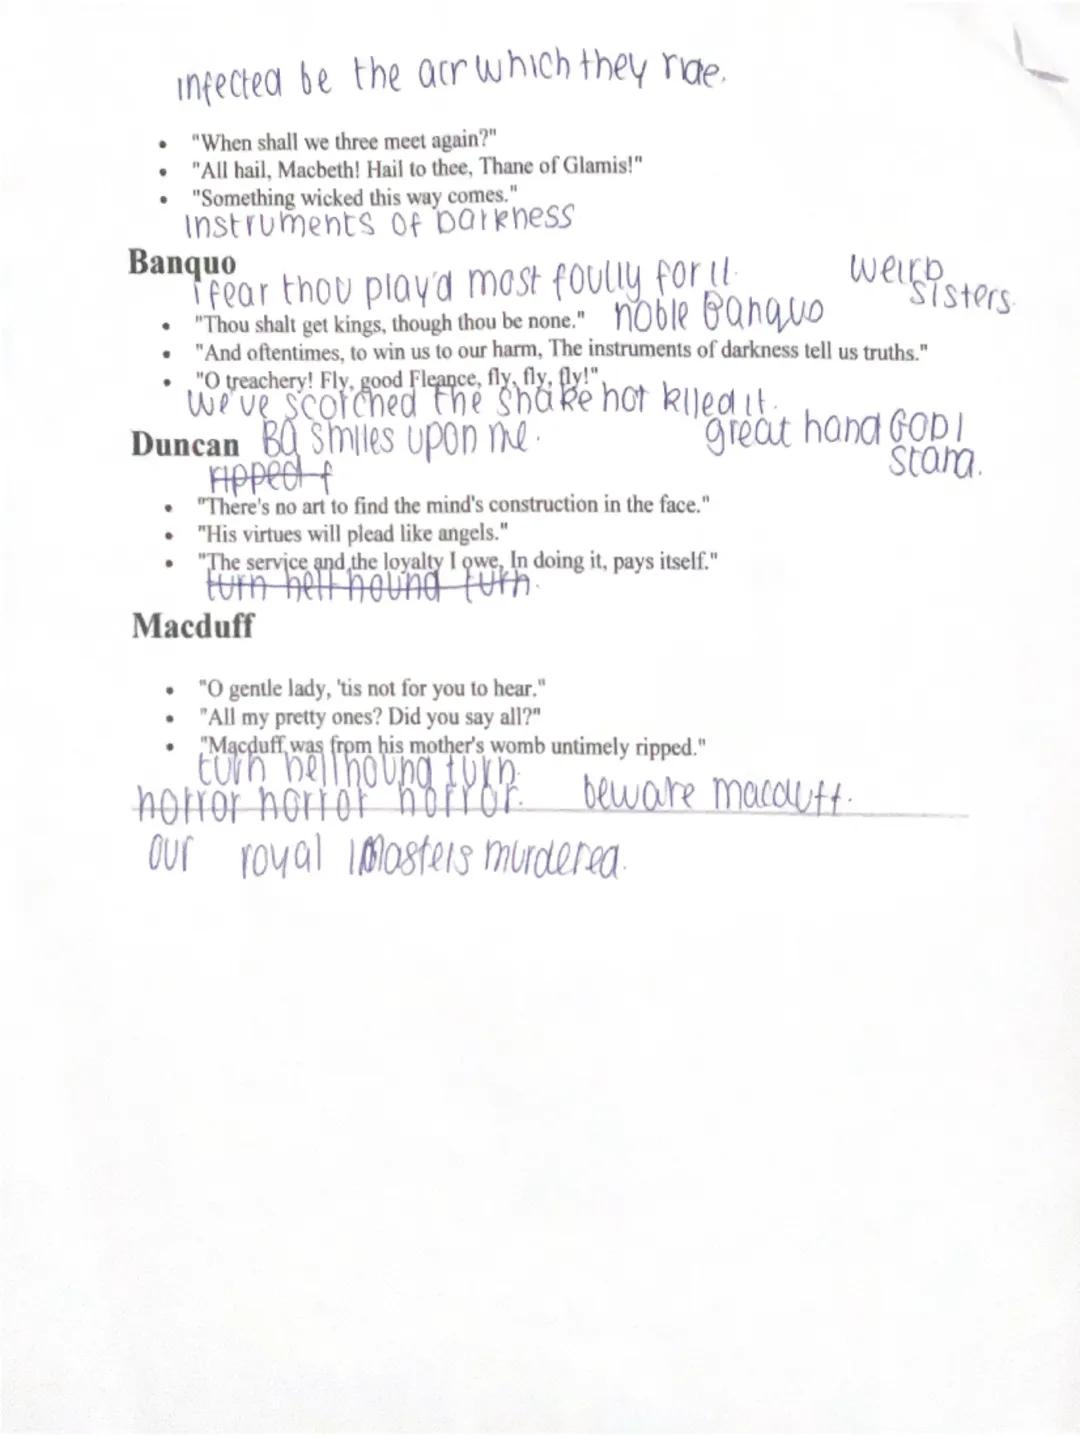 infected be the air which they ride.
• "When shall we three meet again?"
• "All hail, Macbeth! Hail to thee, Thane of Glamis!"
• "Something wicked this way comes."
instruments of Darkness
Banquo
i fear thou play'd most foully for it.
weird sisters.
• "Thou shalt get kings, though thou be none." noble Banquo
• "And oftentimes, to win us to our harm, The instruments of darkness tell us truths."
• "O treachery! Fly, good Fleance, fly, fly, fly!"
We've scorched the snake not killed it.
Duncan Ba smiles upon me.
great hand GOD I
stand.
ripped f
• "There's no art to find the mind's construction in the face."
• "His virtues will plead like angels."
• "The service and the loyalty I owe, In doing it, pays itself."
turn hell hound turn.
Macduff
• "O gentle lady, 'tis not for you to hear."
• "All my pretty ones? Did you say all?"
• "Macduff was from his mother's womb untimely ripped."
turn hellhound turn.
horror horror horror. beware macduff.
our royal masters murdered.